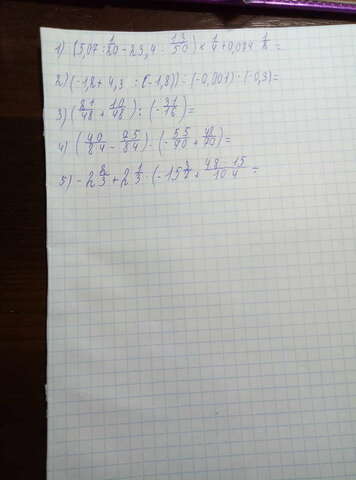 1) (5,07 : 1/20 - 23,4 : 13/50) × 1/4 + 0,024 : 1/2 =
2) (-1,2 + 4,3 : (-1,8)) : (-0,001) · (-0,3) =
3) (21/48 + 10/48) : (-31/16) =
4) (40/84 - 25/84) · (-55/70 + 48/70) =
5) - 2 2/3 + 2 1/3 · (-15 3/4 + 48/10 · 15/4 =